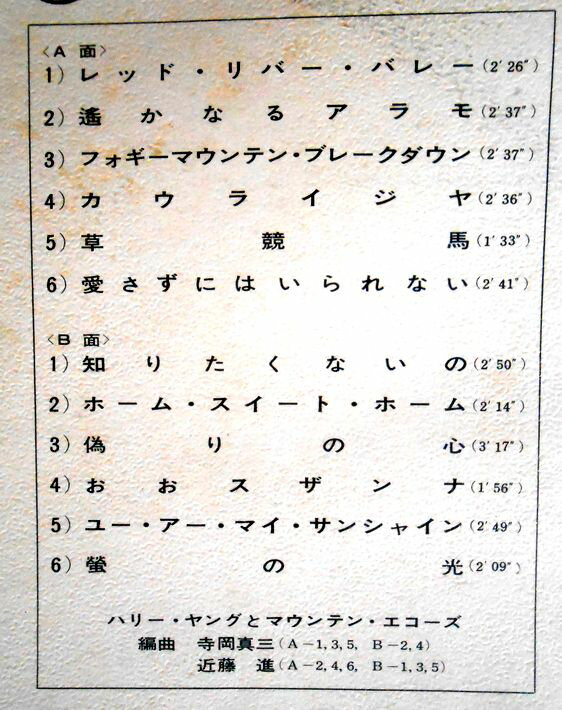 〈A 面〉
1) レッド・リバー・バレー (2′26″)
2) 遙かなるアラモ (2′37″)
3) フォギーマウンテン・ブレークダウン (2′37″)
4) カウライジヤ (2′36″)
5) 草競馬 (1′33″)
6) 愛さずにはいられない (2′41″)
〈B 面〉
1) 知りたくないの (2′50″)
2) ホーム・スイート・ホーム (2′14″)
3) 偽りの心 (3′17″)
4) おおスザンナ (1′56″)
5) ユー・アー・マイ・サンシャイン (2′49″)
6) 螢の光 (2′09″)
ハリー・ヤングとマウンテン・エコーズ
編曲 寺岡真三 (A−1, 3, 5, B−2, 4)
近藤 進 (A−2, 4, 6, B−1, 3, 5)